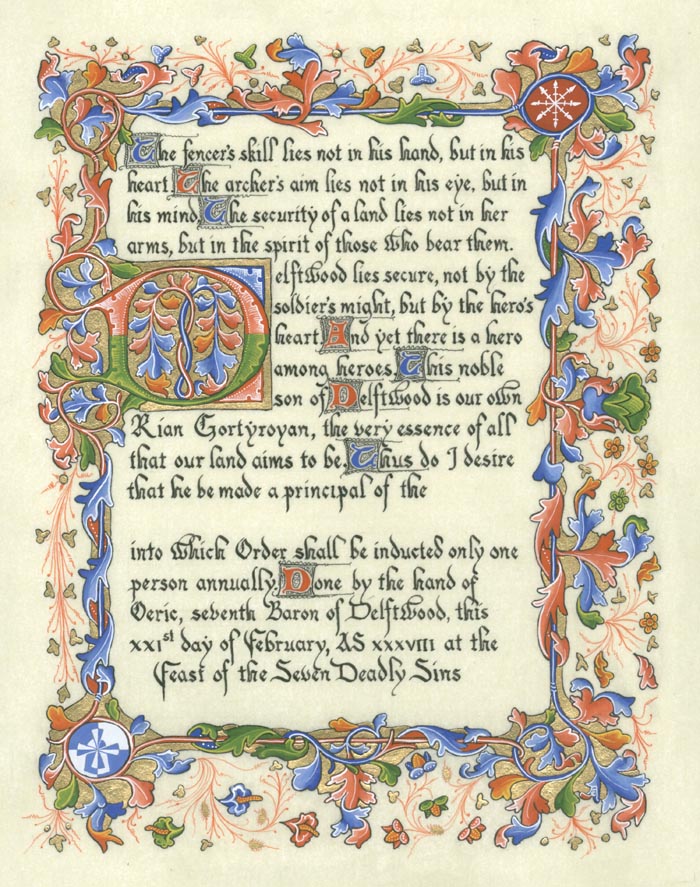 The fencer's skill lies not in his hand, but in his
heart. The archer's aim lies not in his eye, but in
his mind. The security of a land lies not in her
arms, but in the spirit of those who bear them.
Delftwood lies secure, not by the
soldier's might, but by the hero's
heart. And yet there is a hero
among heroes. This noble
son of Delftwood is our own
Rian Gortyroyan, the very essence of all
that our land aims to be. Thus do I desire
that he be made a principal of the
into which Order shall be inducted only one
person annually. Done by the hand of
Oeric, seventh Baron of Delftwood, this
xxist day of February, AS xxxviii at the
Feast of the Seven Deadly Sins